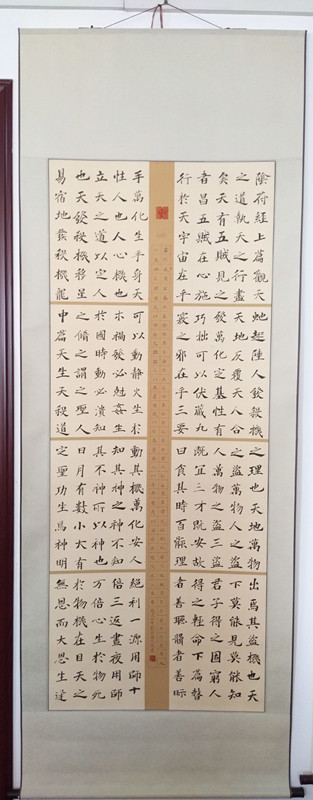 陰符經上篇觀天
之道執天之行盡
矣天有五賊見之
者昌五賊在心施
行於天宇宙在乎
手萬化生乎身天
性人也人心機也
立天之道以定人
也天發殺機移星
易宿地發殺機龍
虵起陸人發殺機
天地反覆天人合
發萬化定基性有
巧拙可以伏藏九
竅之邪在乎三要
可以動靜火生於
木禍發必尅姦生
於國時動必潰知
之脩之謂之理人
中篇天生天殺道
之理也天地萬物
之盜萬物人之盜
人萬物之盜三盜
既宜三才既安故
曰食其時百骸理
動其機萬化安人
知其神之神不知
其不神所以神也
日月有數小大有
定聖功生焉神明
出焉其盜機也天
下莫能見莫能知
君子得之固窮人
得之輕命下篇瞽
者善聽聾者善眎
絕利一源用師十
倍三返晝夜用師
万倍心生於物死
於物機在目天之
無恩而大恩生